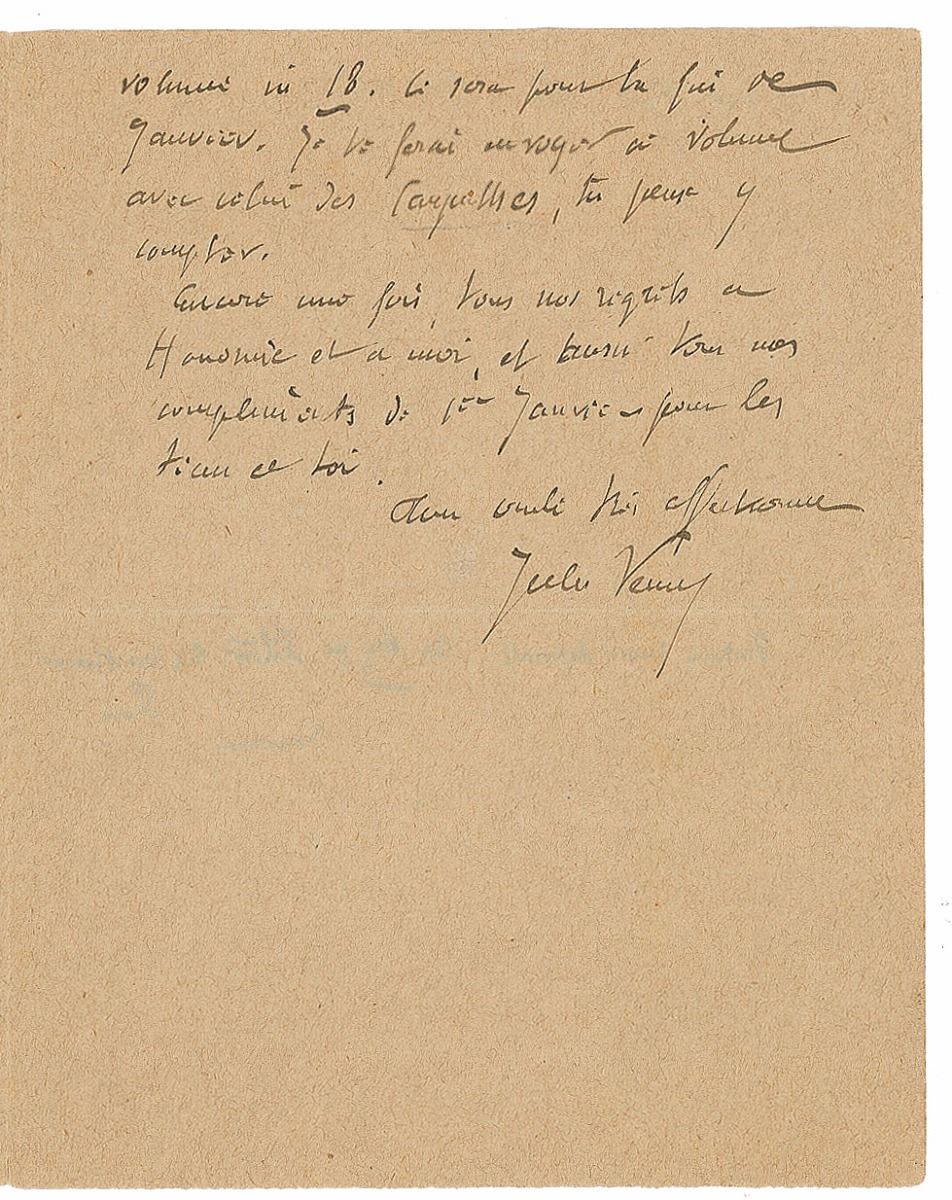 volume in 18. Ce sera pour la fin de
Janvier. Je te ferai envoyer ce volume
avec celui des Carpathes, tu peux y
compter.
Encore une fois, tous nos regrets à
Honorine et à moi, et aussi tous nos
compliments de 1er Janvier pour les
tiens et toi.
Ton oncle très affectionné
Jules Verne